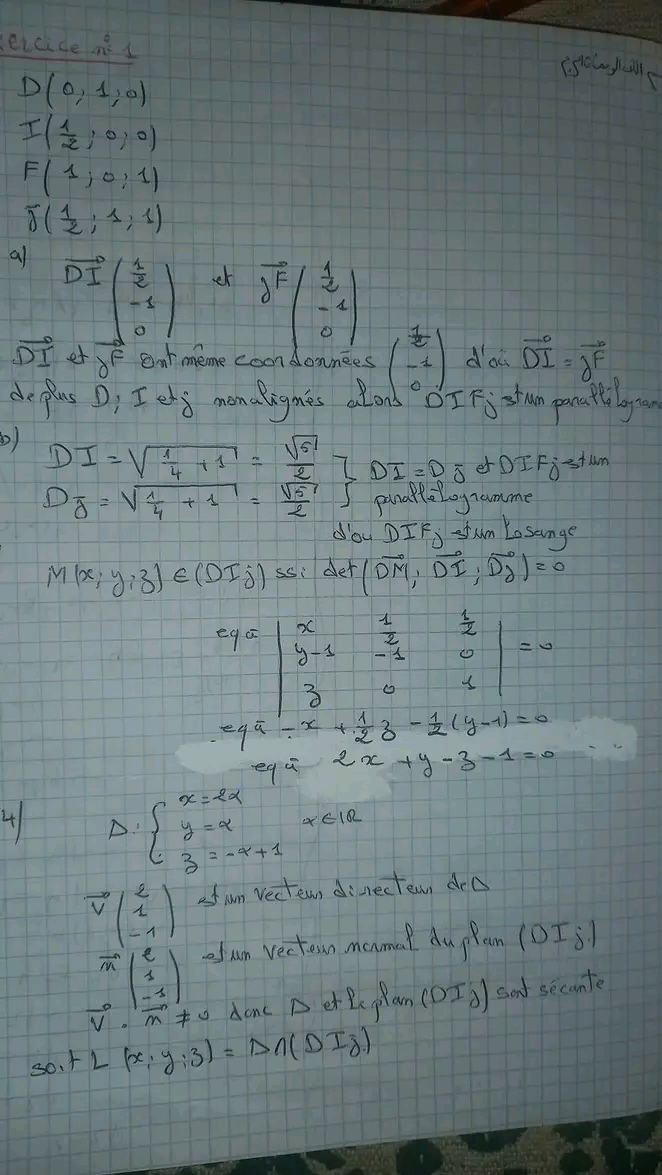 ercice n° 1
D(0; 1; 0)
I(1/2; 0; 0)
F(1; 0; 1)
J(1/2; 1; 1)
a) DI (1/2 -1 0) et JF (1/2 -1 0)
DI et JF ont même coordonnées (1/2 -1 0) d'où DI = JF
de plus D; I et J non alignés alors DIFJ est un parallélogram
b) DI = √(1/4 + 1) = √5/2 } DI = DJ et DIFJ est un
DJ = √(1/4 + 1) = √5/2 } parallélogramme
d'où DIFJ est un Losange
M(x; y; z) ∈ (DIJ) ssi det(DM; DI; DJ) = 0
eq à | x 1/2 1/2 |
| y-1 -1 0 | = 0
| z 0 1 |
eq à -x + 1/2 z - 1/2 (y-1) = 0
eq à 2x + y - z - 1 = 0
4) Δ: { x = 2α
y = α α ∈ IR
z = -α + 1
V (2 1 -1) est un vecteur directeur de Δ
n (2 1 -1) est un vecteur normal du plan (DIJ)
V . n ≠ 0 donc Δ et le plan (DIJ) sont sécante
soit L (x; y; z) = Δ ∩ (DIJ)